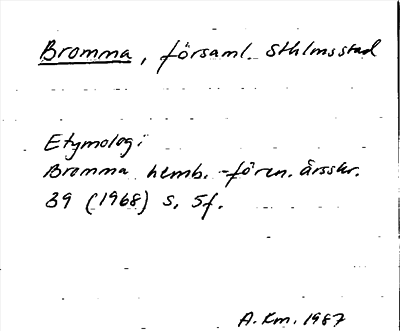 Bromma, församl. Sthlms stad
Etymologi
Bromma hemb.-fören. årsskr.
39 (1968) s. 5f.
A.Km. 1987